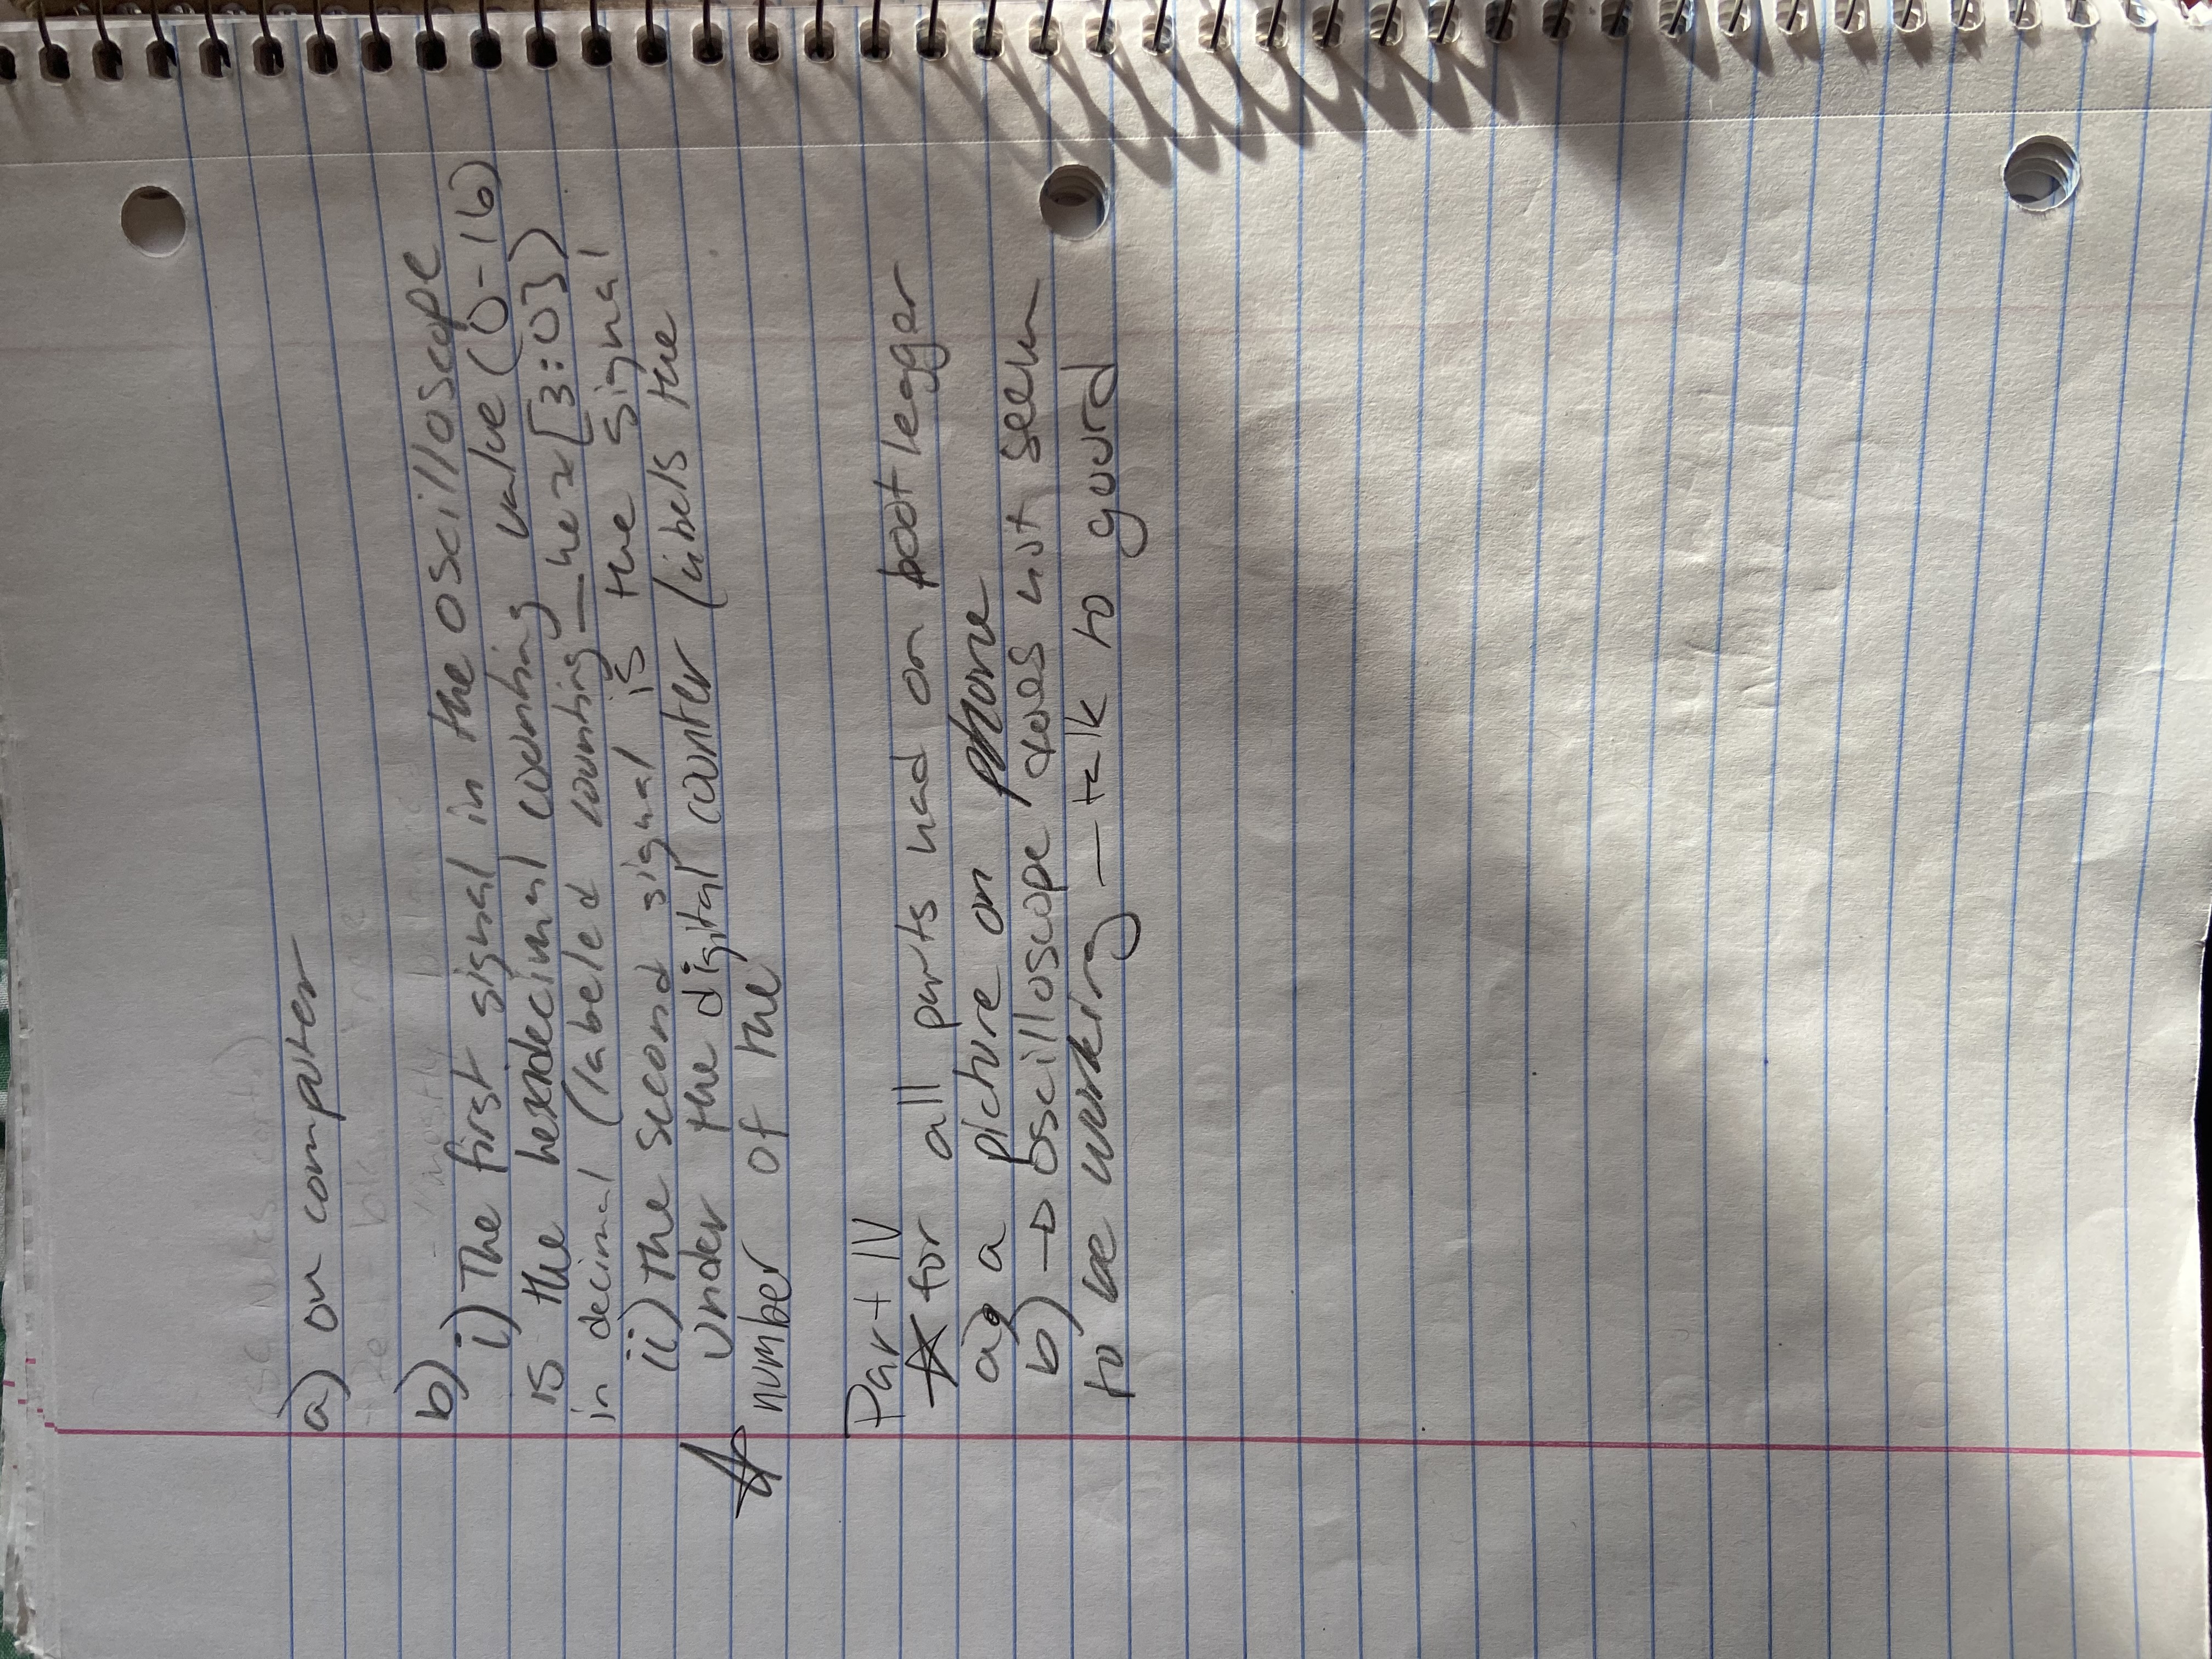 (SG Notes contd)
a) on computer
b)
i) The first signal in the oscilloscope
is the hexidecimal counting value (0-16)
in decimal (labeled counting_hex[3:0])
ii) the second signal is the signal
under the digital counter (labels the
number of the
Part IV
for all parts had on bootlegger
a) a picture on phone
b) → oscilloscope does not seem
to be working - talk to guurd